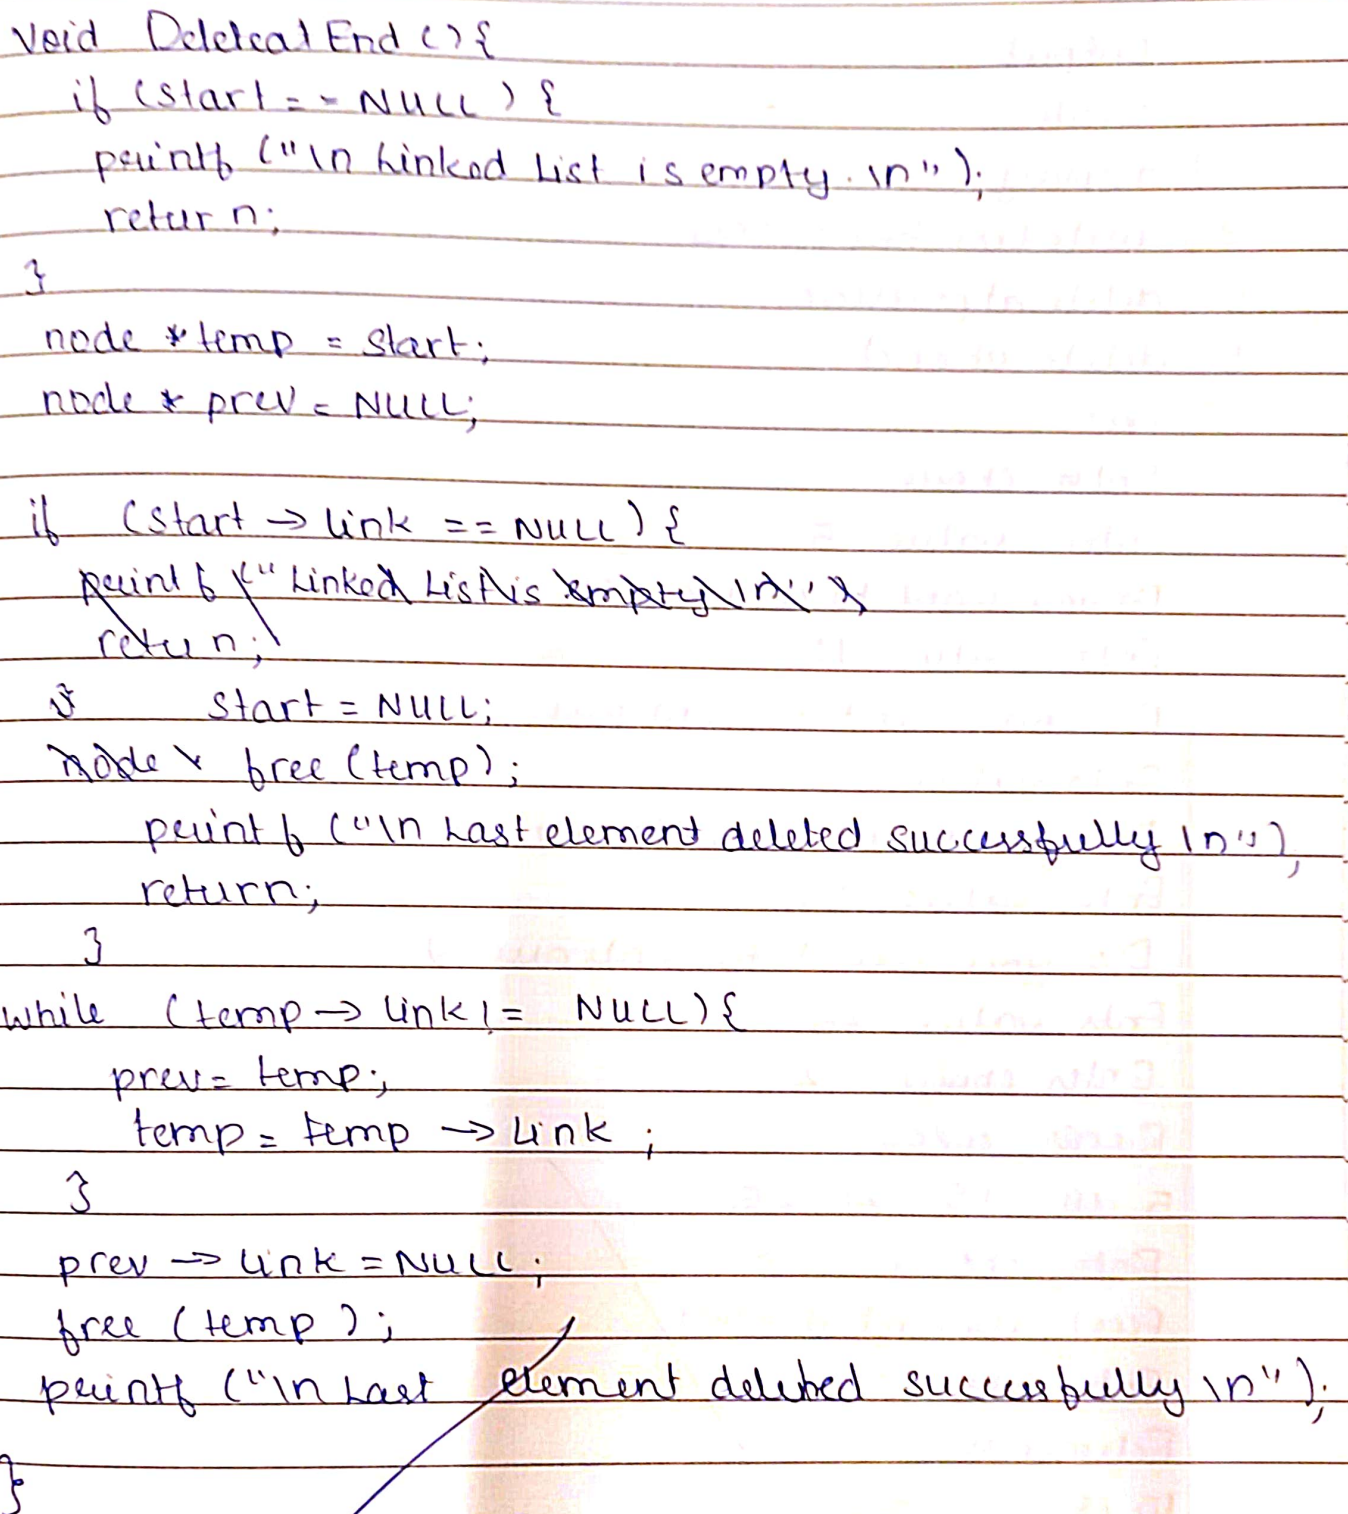 void Deleteat End () {
if (start == NULL) {
printf ("\n Linked List is empty. \n");
return;
}
node * temp = start;
node * prev = NULL;
if (start → link == NULL) {
printf (" Linked List is empty \n")
retun;
} start = NULL;
node * free (temp);
printf ("\n Last element deleted successfully \n"),
return;
}
while (temp → link != NULL) {
prev = temp;
temp = temp → link ;
}
prev → link = NULL;
free (temp);
printf ("\n Last element deleted successfully \n");
}